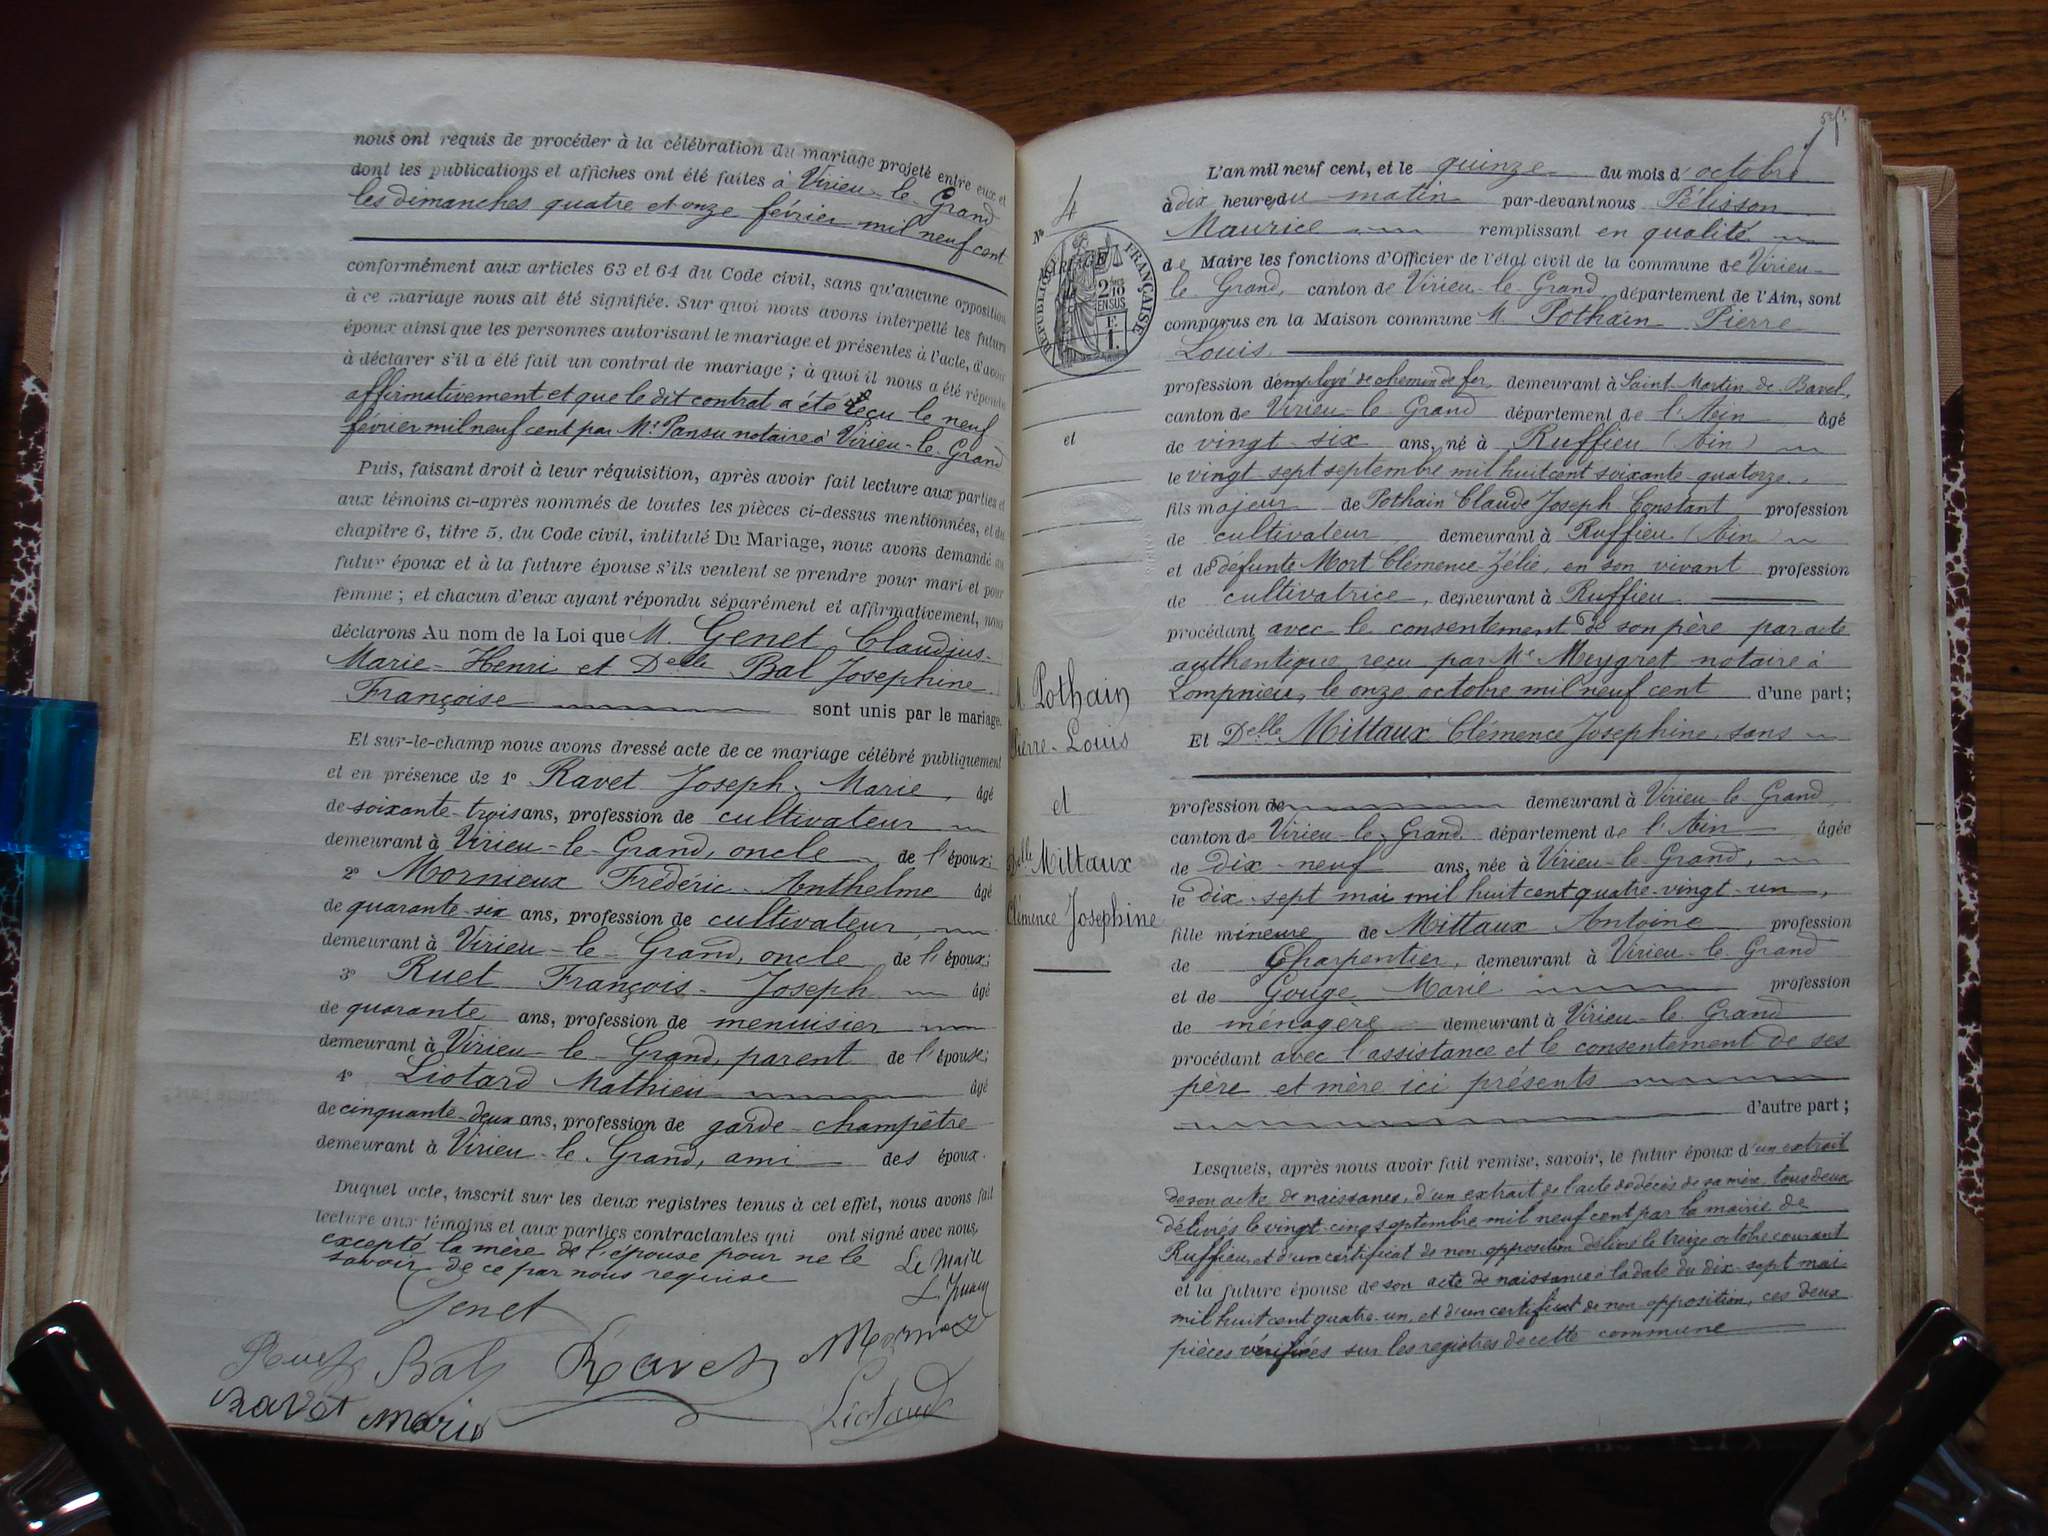 nous ont requis de procéder à la célébration du mariage projeté entre eux et
dont les publications et affiches ont été faites à Virieu-le-Grand
les dimanches quatre et onze février mil neuf cent
conformément aux articles 63 et 64 du Code civil, sans qu'aucune opposition
à ce mariage nous ait été signifiée. Sur quoi nous avons interpellé les futurs
époux ainsi que les personnes autorisant le mariage et présentes à l'acte, d'avoir
à déclarer s'il a été fait un contrat de mariage ; à quoi il nous a été répondu
affirmativement et que le dit contrat a été reçu le neuf
février mil neuf cent par Me Pansu notaire à Virieu-le-Grand
Puis, faisant droit à leur réquisition, après avoir fait lecture aux parties et
aux témoins ci-après nommés de toutes les pièces ci-dessus mentionnées, et du
chapitre 6, titre 5, du Code civil, intitulé Du Mariage, nous avons demandé au
futur époux et à la future épouse s'ils veulent se prendre pour mari et pour
femme ; et chacun d'eux ayant répondu séparément et affirmativement, nous
déclarons Au nom de la Loi que M. Genet Claudius-
Marie-Henri et Delle Bal Josephine
Françoise sont unis par le mariage.
Et sur-le-champ nous avons dressé acte de ce mariage célébré publiquement
et en présence de 1° Ravet Joseph-Marie, âgé
de soixante-trois ans, profession de cultivateur
demeurant à Virieu-le-Grand, oncle de l'époux;
2° Mornieux Frédéric-Anthelme âgé
de quarante-six ans, profession de cultivateur,
demeurant à Virieu-le-Grand, oncle de l'époux;
3° Ruet François-Joseph âgé
de quarante ans, profession de menuisier
demeurant à Virieu-le-Grand, parent de l'épouse;
4° Liotard Mathieu âgé
de cinquante-deux ans, profession de garde-champêtre
demeurant à Virieu-le-Grand, ami des époux.
Duquel acte, inscrit sur les deux registres tenus à cet effet, nous avons fait
lecture aux témoins et aux parties contractantes qui ont signé avec nous,
excepté la mère de l'épouse pour ne le
savoir de ce par nous requise
Le Maire
Genet
Ruet Bal Ravet
Ravet Marie Liotard
N° 4
MARIAGE
RÉPUBLIQUE FRANÇAISE
2/10 EN SUS
F.
1.
et
M. Pothain
Pierre-Louis
et
Delle Mittaux
Clémence Josephine
L'an mil neuf cent, et le quinze du mois d'octobre
à dix heures du matin par-devant nous Pélisson
Maurice remplissant en qualité
de Maire les fonctions d'Officier de l'état civil de la commune de Virieu-
le-Grand, canton de Virieu-le-Grand département de l'Ain, sont
comparus en la Maison commune M. Pothain Pierre
Louis
profession d'employé de chemin de fer, demeurant à Saint-Martin-de-Bavel,
canton de Virieu-le-Grand département de l'Ain âgé
de vingt-six ans, né à Ruffieu (Ain)
le vingt-sept septembre mil huit cent soixante-quatorze,
fils majeur de Pothain Claude Joseph Constant profession
de cultivateur, demeurant à Ruffieu (Ain)
et de défunte Mort Clémence-Zélie, en son vivant profession
de cultivatrice, demeurant à Ruffieu
procédant avec le consentement de son père par acte
authentique reçu par Me Meygret notaire à
Lompnieu, le onze octobre mil neuf cent d'une part;
Et Delle Mittaux Clémence Josephine, sans
profession de demeurant à Virieu-le-Grand,
canton de Virieu-le-Grand département de l'Ain âgée
de dix-neuf ans, née à Virieu-le-Grand,
le dix-sept mai mil huit cent quatre-vingt-un,
fille mineure de Mittaux Antoine profession
de Charpentier, demeurant à Virieu-le-Grand
et de Gouge Marie profession
de ménagère demeurant à Virieu-le-Grand
procédant avec l'assistance et le consentement de ses
père et mère ici présents
d'autre part ;
Lesquels, après nous avoir fait remise, savoir, le futur époux d'un extrait
de son acte de naissance, d'un extrait de l'acte de décès de sa mère, tous deux
délivrés le vingt-cinq septembre mil neuf cent par la mairie de
Ruffieu, et d'un certificat de non opposition délivré le treize octobre courant
et la future épouse de son acte de naissance à la date du dix-sept mai
mil huit cent quatre-un, et d'un certificat de non opposition, ces deux
pièces vérifiées sur les registres de cette commune